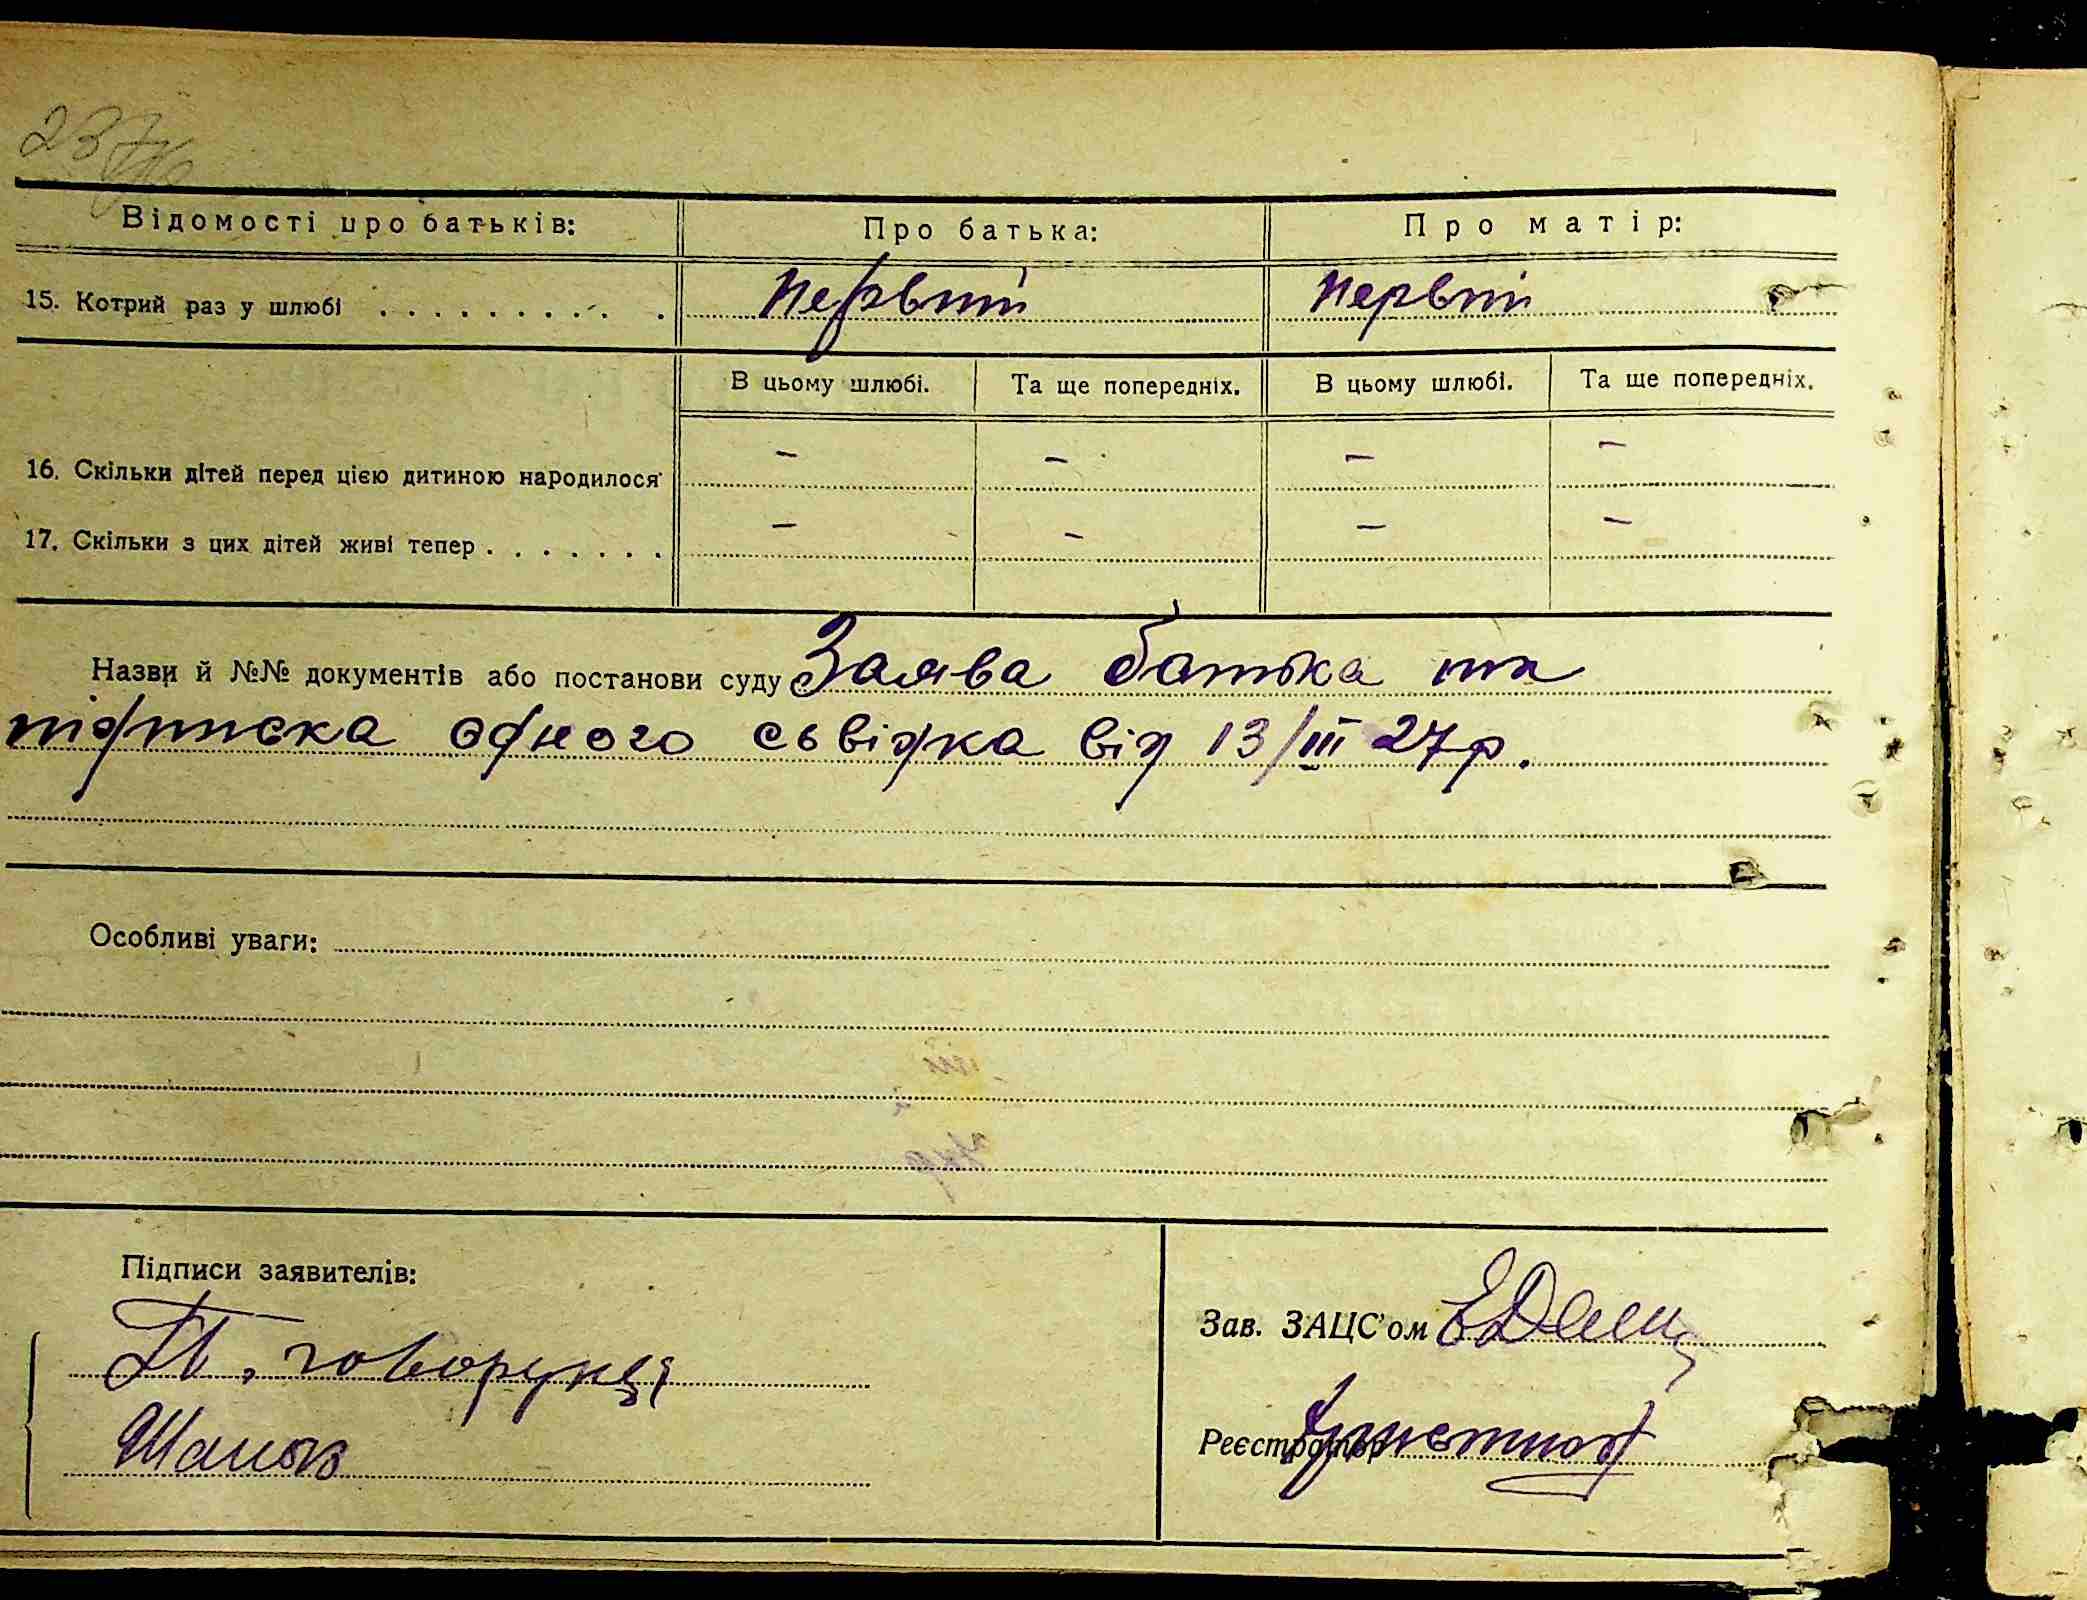 237
Відомості про батьків: Про батька: Про матір:
15. Котрий раз у шлюбі . . . . . . . . . . Первий Первий
В цьому шлюбі. Та ще попередніх. В цьому шлюбі. Та ще попередніх.
16. Скільки дітей перед цією дитиною народилося — — — —
17. Скільки з цих дітей живі тепер . . . . . . . — — — —
Назви й №№ документів або постанови суду Заява батька та
підписка одного сьвідка від 13/III 27 р.
Особливі уваги:
Підписи заявителів:
Зав. ЗАЦС'ом
Реєстратор